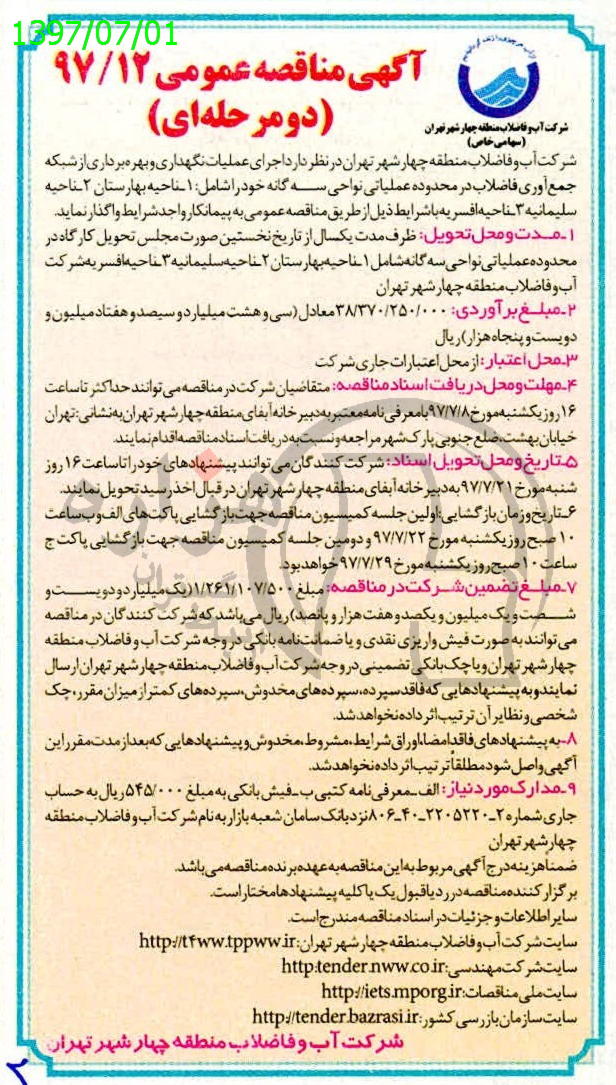 1397/07/01
آگهی مناقصه عمومی ۹۷/۱۲
(دو مرحله‌ای)
شرکت آب و فاضلاب منطقه چهار شهر تهران
(سهامی خاص)
شرکت آب و فاضلاب منطقه چهار شهر تهران در نظر دارد اجرای عملیات نگهداری و بهره برداری از شبکه
جمع آوری فاضلاب در محدوده عملیاتی نواحی سه گانه خود را شامل: ۱ـ ناحیه بهارستان ۲ـ ناحیه
سلیمانیه ۳ـ ناحیه افسریه با شرایط ذیل از طریق مناقصه عمومی به پیمانکار واجد شرایط واگذار نماید.
۱ـ مدت و محل تحویل: ظرف مدت یکسال از تاریخ نخستین صورت مجلس تحویل کارگاه در
محدوده عملیاتی نواحی سه گانه شامل ۱ـ ناحیه بهارستان ۲ـ ناحیه سلیمانیه ۳ـ ناحیه افسریه شرکت
آب و فاضلاب منطقه چهار شهر تهران
۲ـ مبلغ برآوردی: ۳۸/۳۷۰/۲۵۰/۰۰۰ معادل (سی و هشت میلیارد و سیصد و هفتاد میلیون و
دویست و پنجاه هزار) ریال
۳ـ محل اعتبار: از محل اعتبارات جاری شرکت
۴ـ مهلت و محل دریافت اسناد مناقصه: متقاضیان شرکت در مناقصه می توانند حداکثر تا ساعت
۱۶ روز یکشنبه مورخ ۹۷/۷/۸ با معرفی نامه معتبر به دبیرخانه آبفای منطقه چهار شهر تهران به نشانی: تهران
خیابان بهشت، ضلع جنوبی پارک شهر مراجعه و نسبت به دریافت اسناد مناقصه اقدام نمایند.
۵ـ تاریخ و محل تحویل اسناد: شرکت کنندگان می توانند پیشنهادهای خود را تا ساعت ۱۶ روز
شنبه مورخ ۹۷/۷/۲۱ به دبیرخانه آبفای منطقه چهار شهر تهران در قبال اخذ رسید تحویل نمایند.
۶ـ تاریخ و زمان بازگشایی: اولین جلسه کمیسیون مناقصه جهت بازگشایی پاکت های الف و ب ساعت
۱۰ صبح روز یکشنبه مورخ ۹۷/۷/۲۲ و دومین جلسه کمیسیون مناقصه جهت بازگشایی پاکت ج
ساعت ۱۰ صبح روز یکشنبه مورخ ۹۷/۷/۲۹ خواهد بود.
۷ـ مبلغ تضمین شرکت در مناقصه: مبلغ ۱/۲۶۱/۱۰۷/۵۰۰ (یک میلیارد و دویست و
شصت و یک میلیون و یکصد و هفت هزار و پانصد) ریال می باشد که شرکت کنندگان در مناقصه
می توانند به صورت فیش واریزی نقدی و یا ضمانت نامه بانکی در وجه شرکت آب و فاضلاب منطقه
چهار شهر تهران و یا چک بانکی تضمینی در وجه شرکت آب و فاضلاب منطقه چهار شهر تهران ارسال
نمایند و به پیشنهادهایی که فاقد سپرده، سپرده های مخدوش، سپرده های کمتر از میزان مقرر، چک
شخصی و نظایر آن ترتیب اثر داده نخواهد شد.
۸- به پیشنهادهای فاقد امضا، اوراق شرایط، مشروط، مخدوش و پیشنهادهایی که بعد از مدت مقرر این
آگهی واصل شود مطلقاً ترتیب اثر داده نخواهد شد.
۹ـ مدارک مورد نیاز: الف ـ معرفی نامه کتبی ب ـ فیش بانکی به مبلغ ۵۴۵/۰۰۰ ریال به حساب
جاری شماره ۲ـ۲۲۰۵۲۲۰ـ۴۰ـ۸۰۶ نزد بانک سامان شعبه بازار به نام شرکت آب و فاضلاب منطقه
چهار شهر تهران
ضمنا هزینه درج آگهی مربوط به این مناقصه به عهده برنده مناقصه می باشد.
برگزار کننده مناقصه در رد یا قبول یک یا کلیه پیشنهادها مختار است.
سایر اطلاعات و جزئیات در اسناد مناقصه مندرج است.
سایت شرکت آب و فاضلاب منطقه چهار شهر تهران: http://t4ww.tppww.ir
سایت شرکت مهندسی: http:tender.nww.co.ir
سایت ملی مناقصات: http://iets.mporg.ir
سایت سازمان بازرسی کشور: http://tender.bazrasi.ir
شرکت آب و فاضلاب منطقه چهار شهر تهران